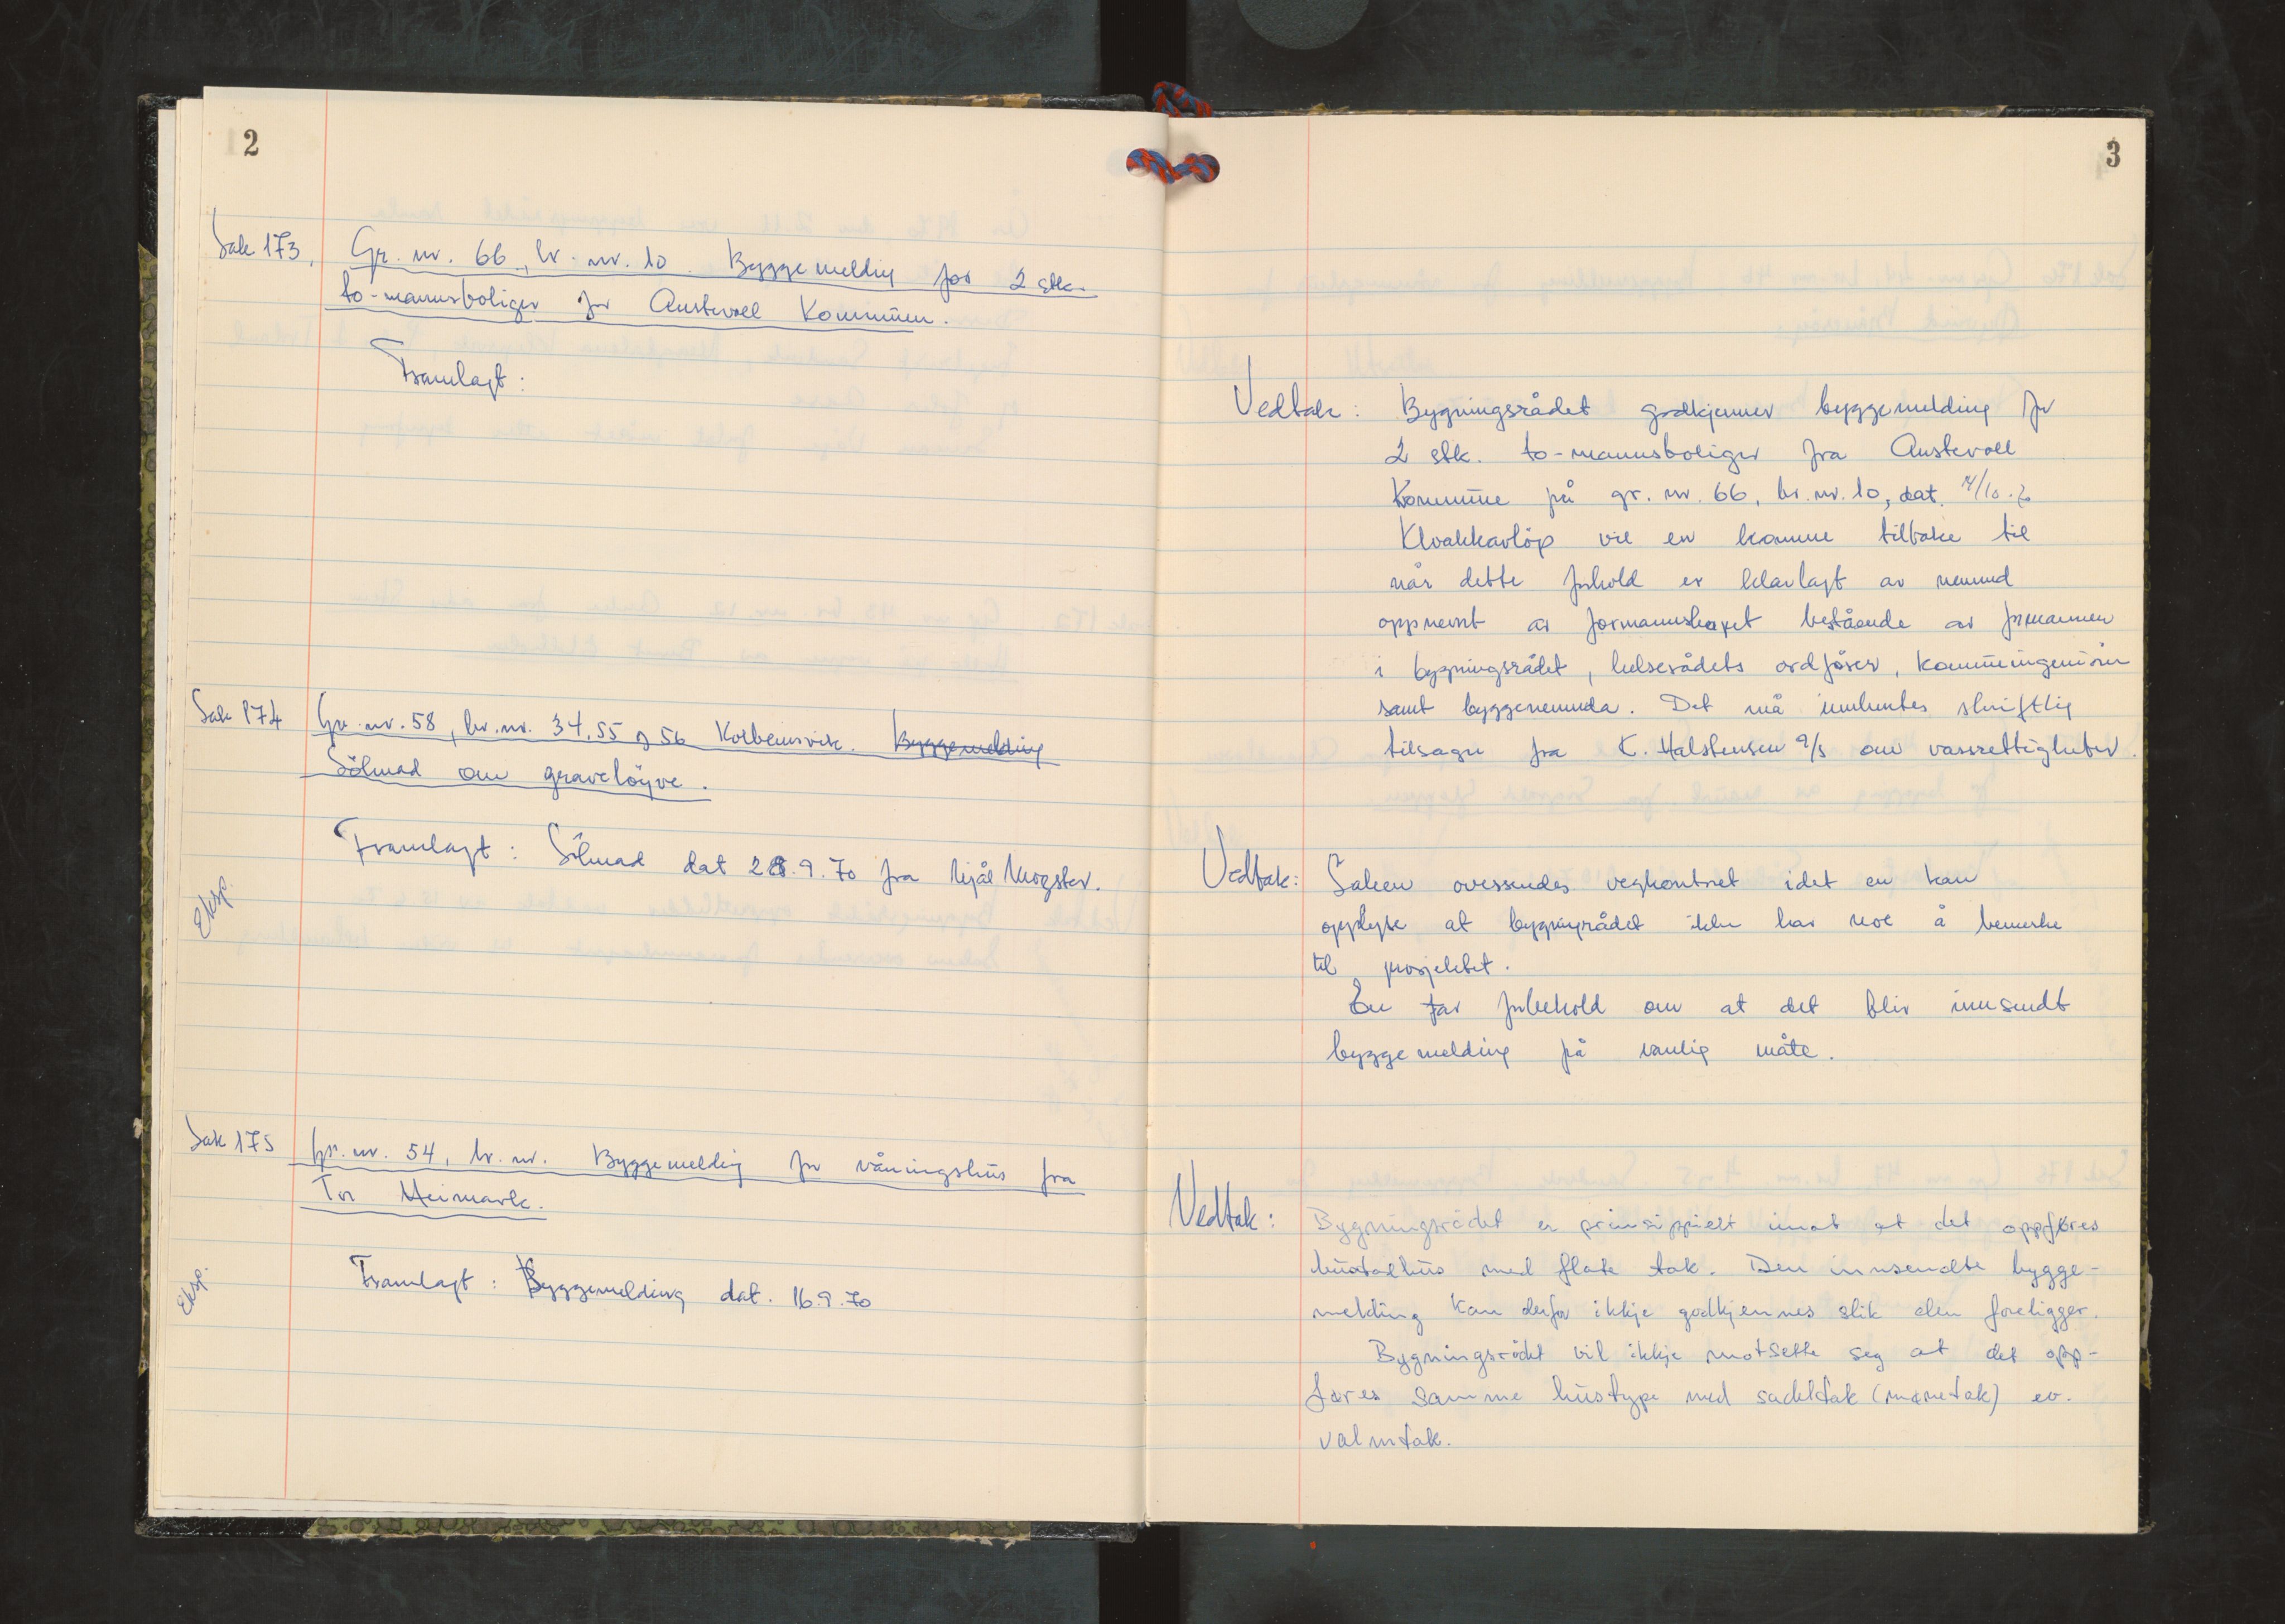 2
Sak 173, Gr. nr. 66, br. nr. 10. Byggemelding for 2 stk.
to-mannsboliger for Austevoll Kommune.
Framlagt:
Sak 174 Gr. nr. 58, br. nr. 34, 55 og 56 Kolbeinsvik. Byggemelding
Sölnad om graveløyve.
Framlagt: Sölnad dat 28.9.70 fra Mogster.
Eksp.
Sak 175 Gr. nr. 54, br. nr. Byggemelding for våningshus fra
Tor Meimark.
Framlagt: Byggemelding dat. 16.9.70
Eksp.
3
Vedtak: Bygningsrådet godkjenner byggemelding for
2 stk. to-mannsboliger fra Austevoll
Kommune på gr. nr. 66, br. nr. 10, dat.
Kloakkavløp vil en komme tilbake til
når dette forhold er klarlagt av nemnd
oppnevnt av formannskapet bestående av formannen
i bygningsrådet, helserådets ordfører, kommuneingeniør
samt byggenemnda. Det må innhentes skriftlig
tilsagn fra K. Halstensen a/s om vassrettigheter.
Vedtak: Saken oversendes vegkontoret idet en kan
opplyse at bygningsrådet ikke har noe å bemerke
til prosjektet.
En tar forbehold om at det blir innsendt
byggemelding på vanlig måte.
Vedtak: Bygningsrådet er prinsippielt imot at det oppføres
bustadhus med flate tak. Den innsendte bygge-
melding kan derfor ikkje godkjennes slik den foreligger.
Bygningsrådet vil ikkje motsette seg at det opp-
føres samme hustype med sadeltak (mønetak) ev.
valmtak.